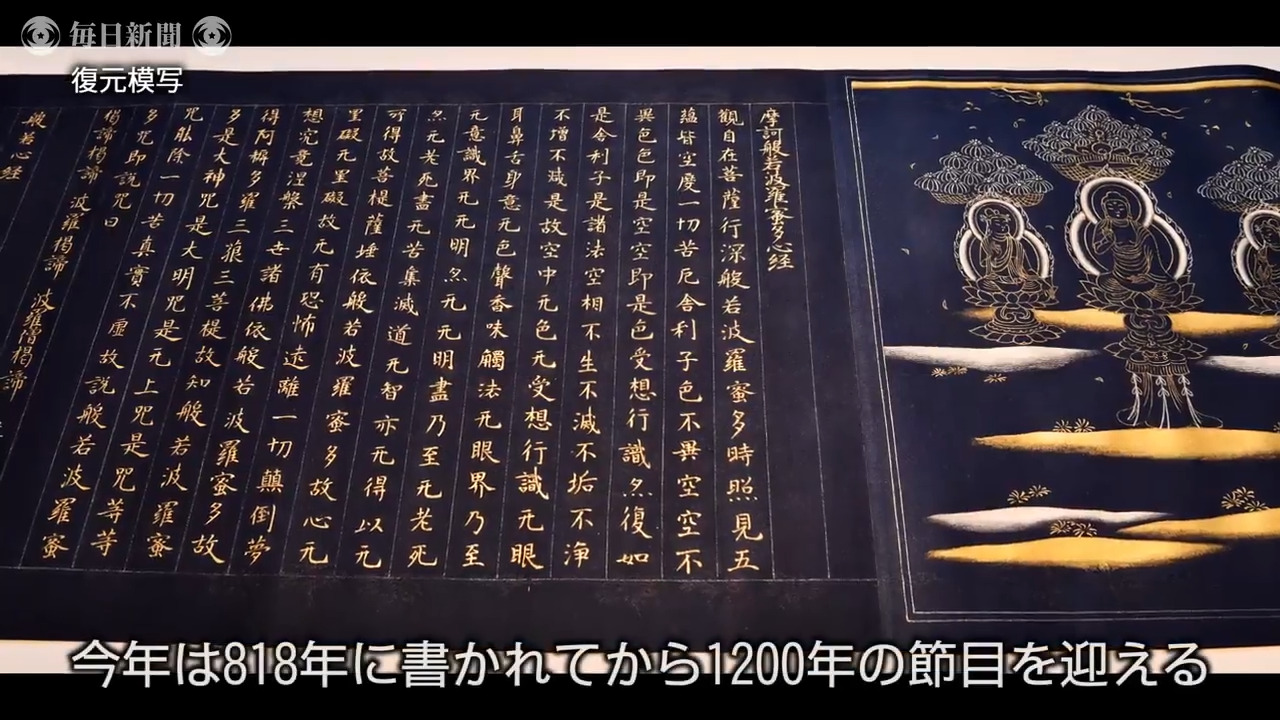 毎日新聞
復元模写
摩訶般若波羅蜜多心経
觀自在菩薩行深般若波羅蜜多時照見五
蘊皆空度一切苦厄舎利子色不異空空不
異色色即是空空即是色受想行識亦復如
是舎利子是諸法空相不生不滅不垢不浄
不增不減是故空中无色无受想行識无眼
耳鼻舌身意无色聲香味觸法无眼界乃至
无意識界无无明亦无无明盡乃至无老死
亦无老死盡无苦集滅道无智亦无得以无
所得故菩提薩埵依般若波羅蜜多故心无
罣礙无罣礙故无有恐怖遠離一切顛倒夢
想究竟涅槃三世諸佛依般若波羅蜜多故
得阿耨多羅三藐三菩提故知般若波羅蜜
多是大神咒是大明咒是无上咒是无等等
咒能除一切苦真實不虚故說般若波羅蜜
多咒即說咒曰
揭諦揭諦 波羅揭諦 波羅僧揭諦
般若心経
今年は818年に書かれてから1200年の節目を迎える